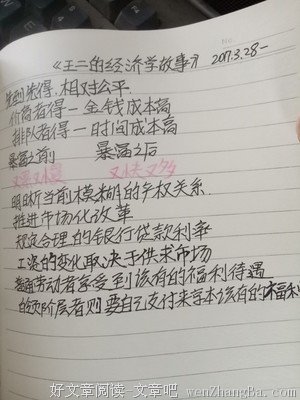 《王二的经济学故事》 2017.3.28-
No.
先到先得.相对公平.
价高者得—金钱成本高
排队者得—时间成本高
暴富之前 暴富之后
又累又慢 又快又多
明晰当前模糊的产权关系.
推进市场化改革
规定合理的银行贷款利率
工资的变化取决于供求市场
劳动者享受到该有的福利待遇
阶层者则要自己支付来本该有的福利
好文章阅读-文章吧 wenZhangBa.com